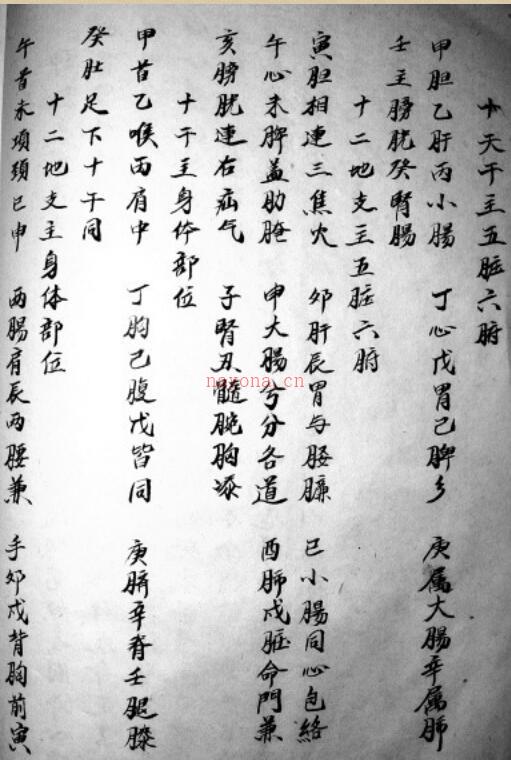 十天干主五脏六腑
甲胆乙肝丙小腸 丁心戊胃己脾乡 庚属大腸辛属肺
壬主膀胱癸腎腸
十二地支主五脏六腑
寅胆相連三焦火 卯肝辰胃与腰臁 巳小腸同心包絡
午心未脾益肋腌 申大腸兮分各道 酉肺戌脏命門兼
亥膀胱連右疝气 子腎丑髓腕胸
十干主身体部位
甲首乙喉丙肩中 丁胸己腹戊皆同 庚臍辛脊壬腿膝
癸肚足下十干同
十二地支主身体部位
午首未項頸巳申 两腸肩辰两腰兼 手卯戌背胸前寅
nayona.cn